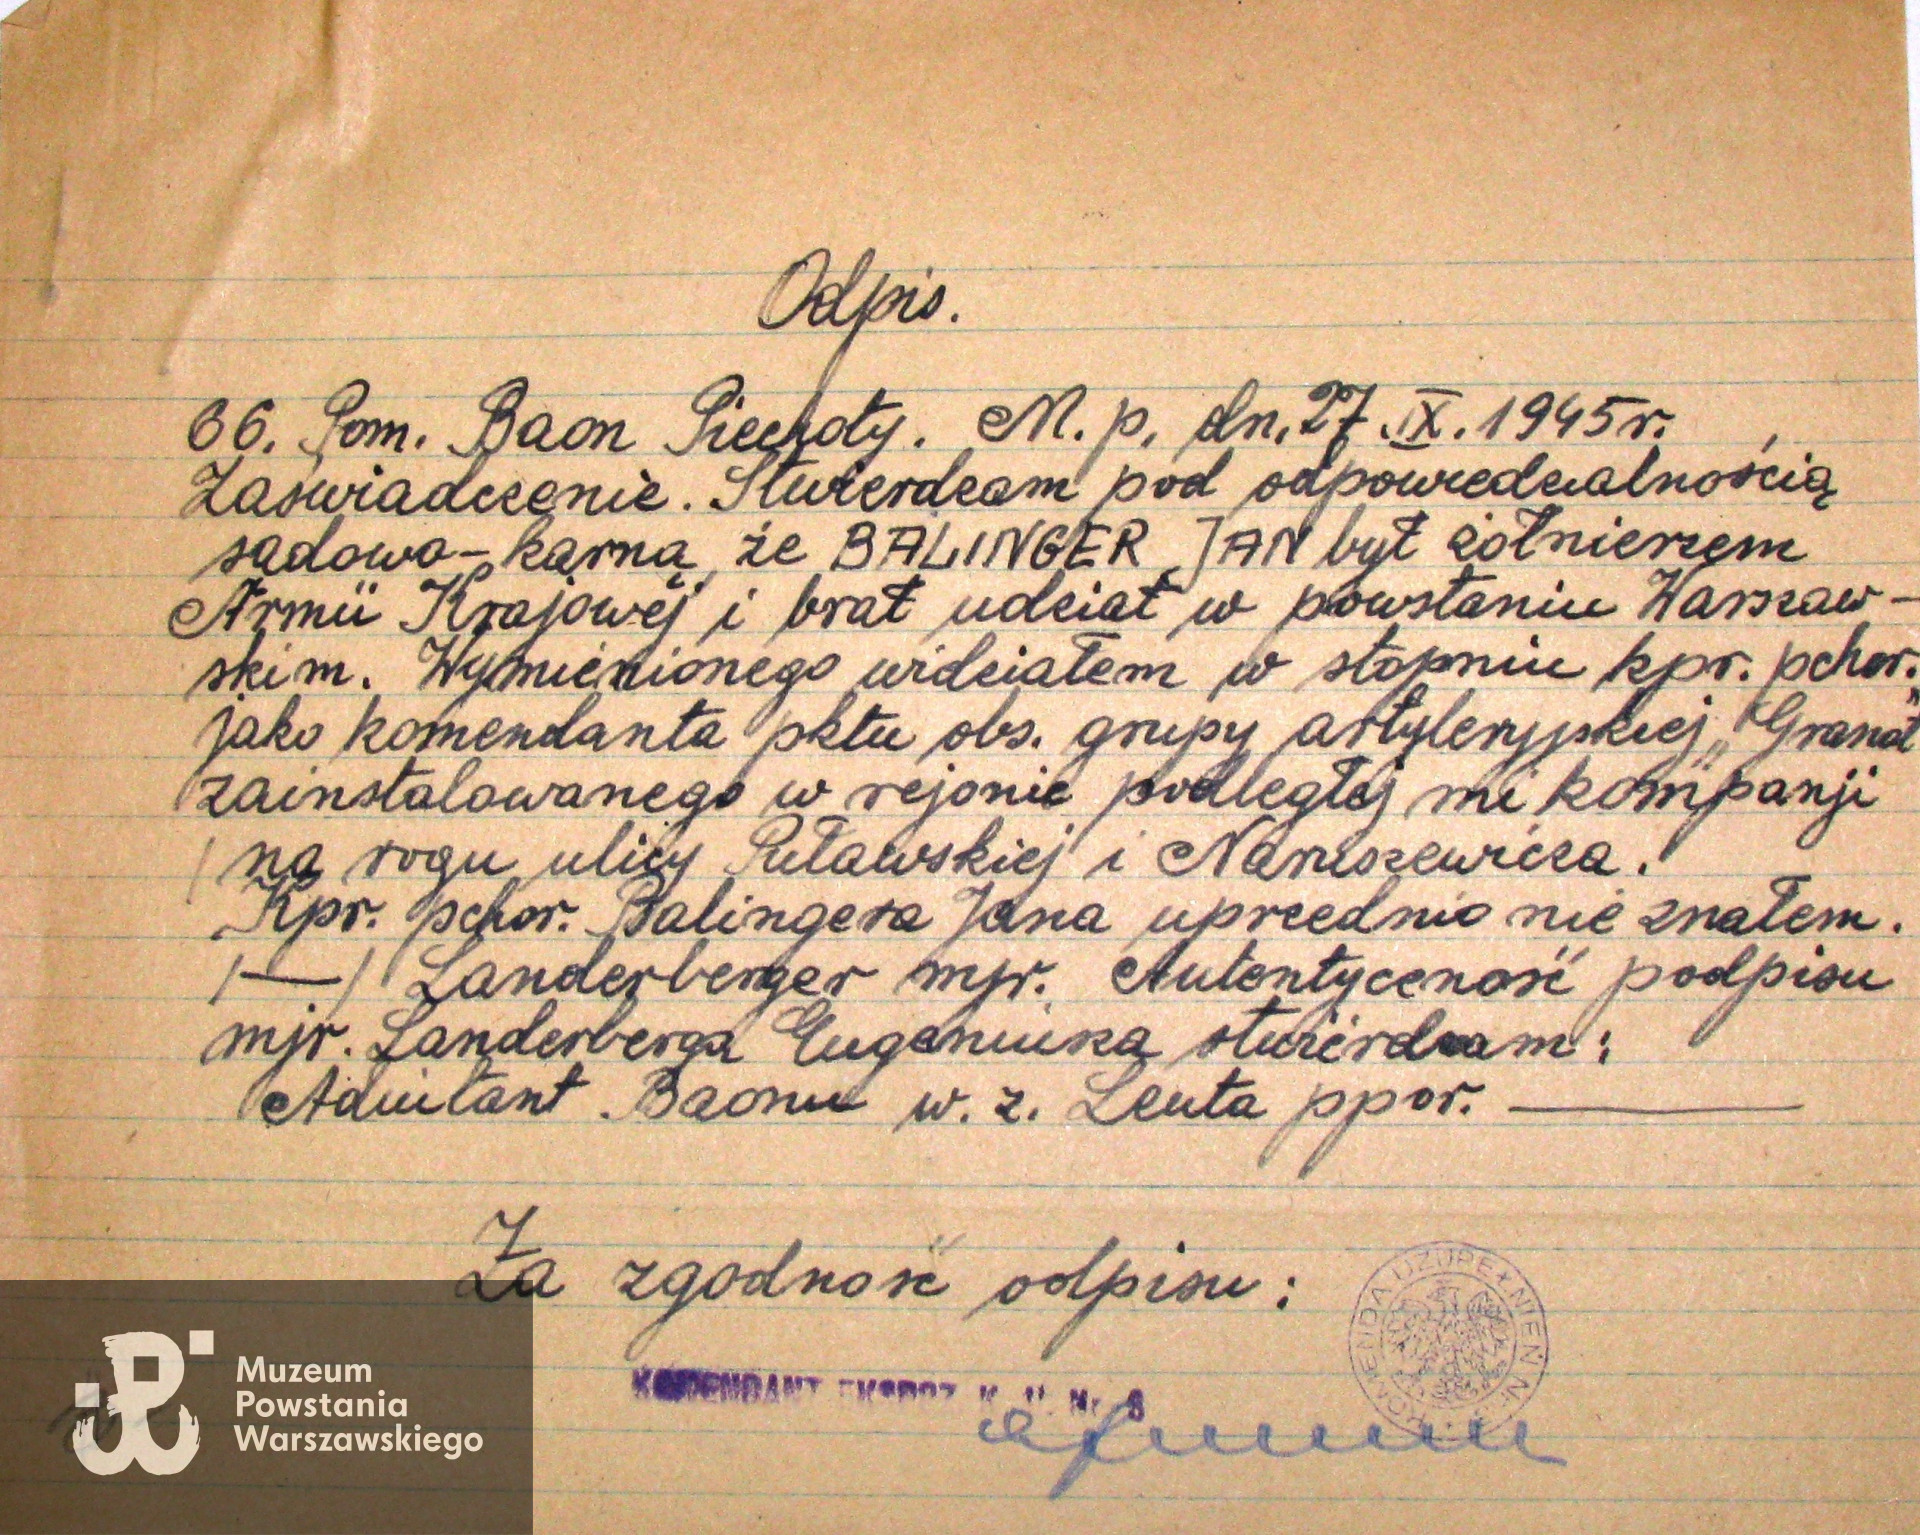 Odpis.
66. Pom. Baon Piechoty. M. p. dn. 27.IX.1945 r.
Zaświadczenie. Stwierdzam pod odpowiedzialnością
sądowo-karną, że BALINGER JAN był żołnierzem
Armii Krajowej i brał udział w powstaniu Warszaw-
skim. Wymienionego widziałem w stopniu kpr. pchor.
jako komendanta pktu obs. grupy artyleryjskiej „Granat"
zainstalowanego w rejonie podległej mi kompanji
na rogu ulicy Puławskiej i Naruszewicza.
Kpr. pchor. Balingera Jana uprzednio nie znałem.
/—/ Landerberger mjr. Autentyczność podpisu
mjr. Landerberga Eugeniusza stwierdzam:
Adiutant Baonu w. z. Leuta ppor. ———
Za zgodność odpisu:
KOMENDA UZUPEŁNIEŃ Nr
KOMENDANT EKSPOZ. K. U. Nr 8
Muzeum
Powstania
Warszawskiego